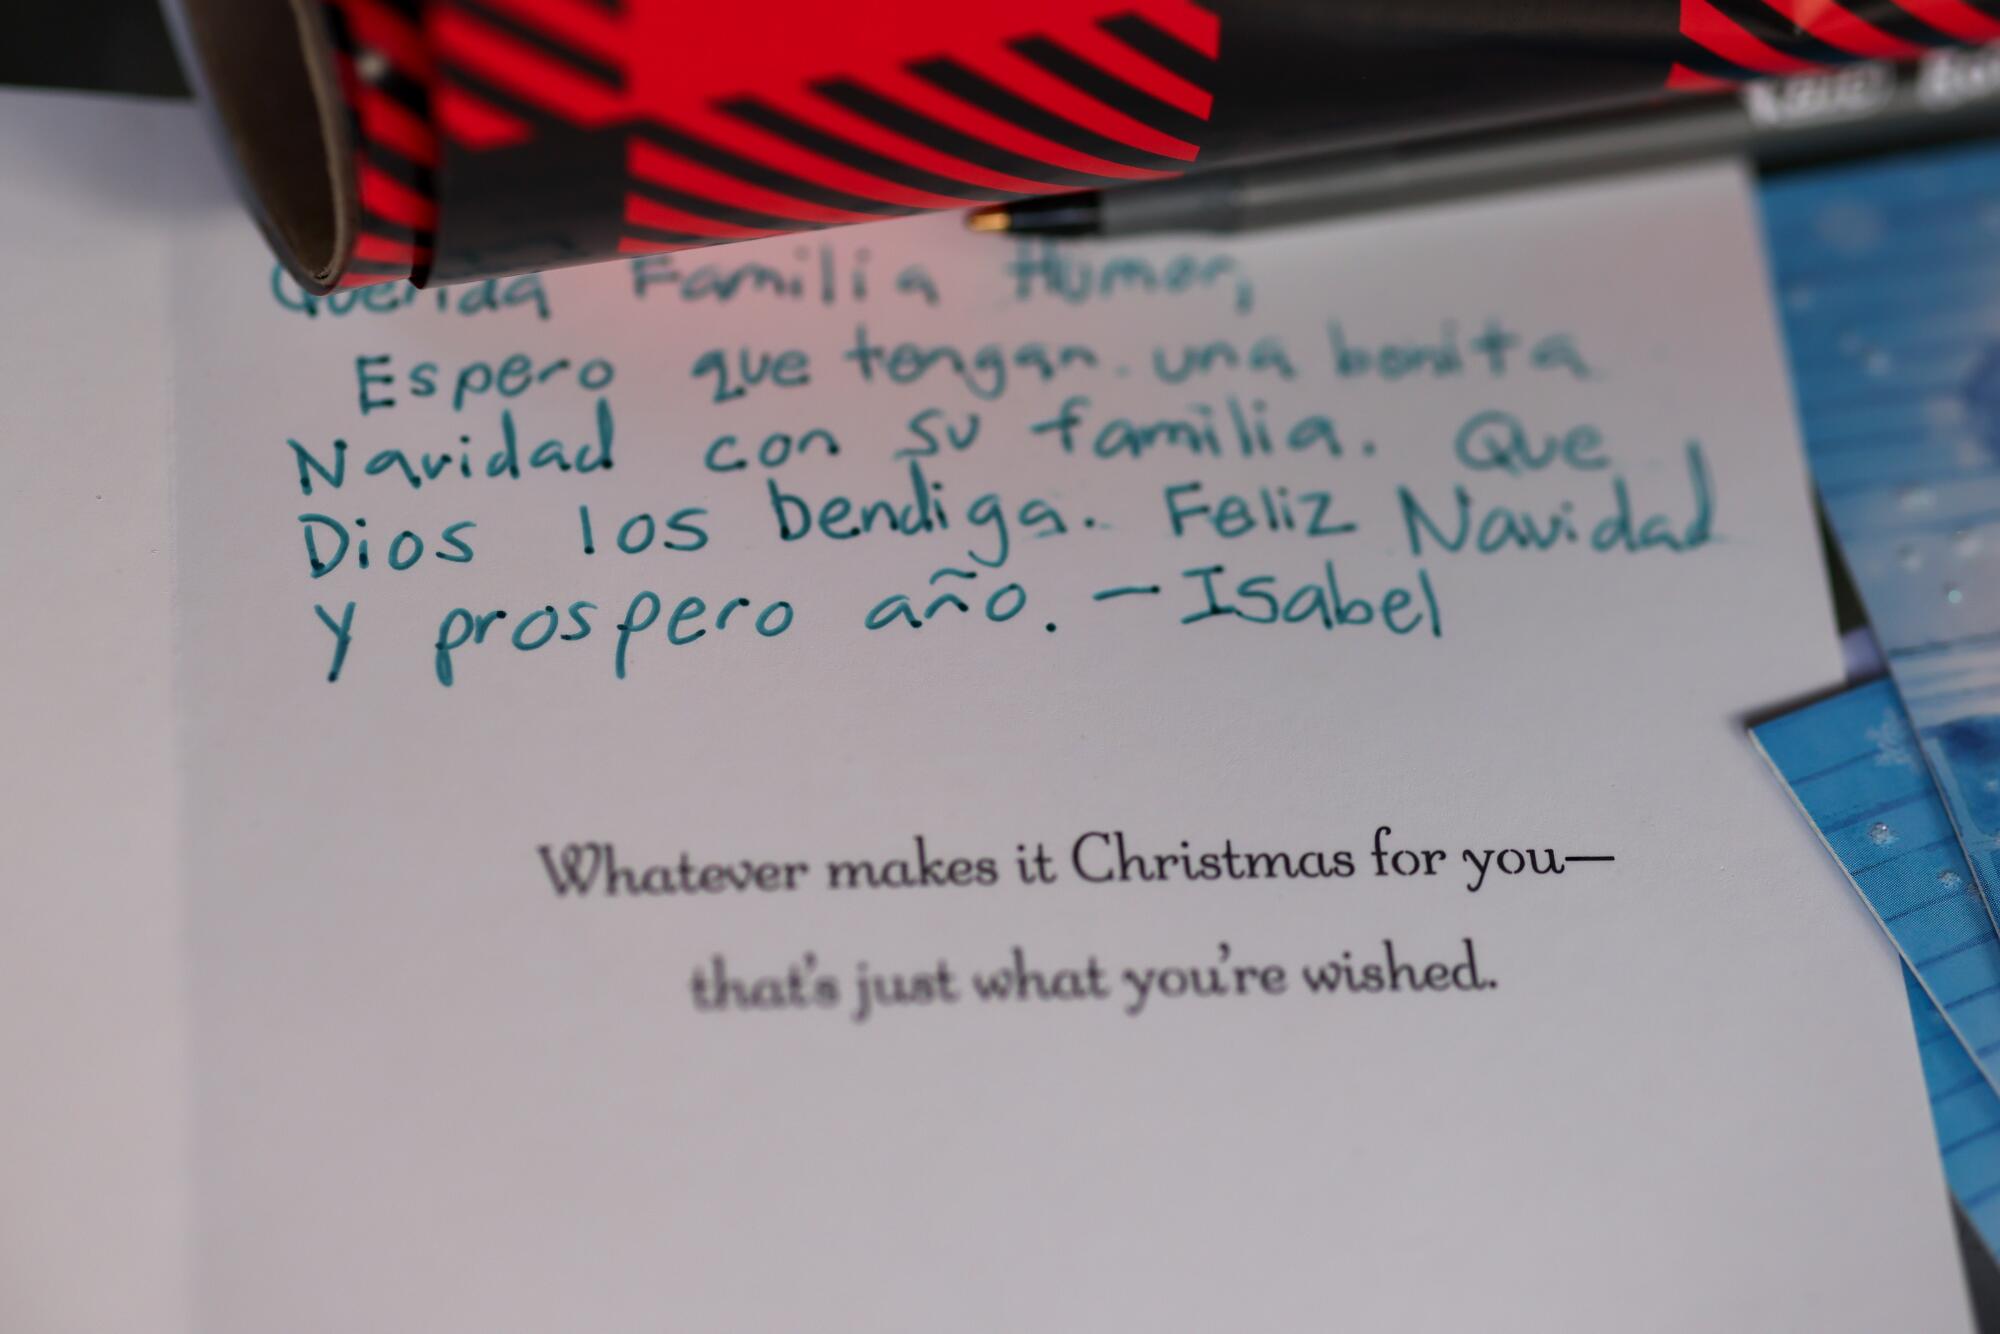 Querida Familia Humor,
Espero que tengan una bonita
Navidad con su familia. Que
Dios los bendiga. Feliz Navidad
y prospero año. — Isabel
Whatever makes it Christmas for you—
that's just what you're wished.